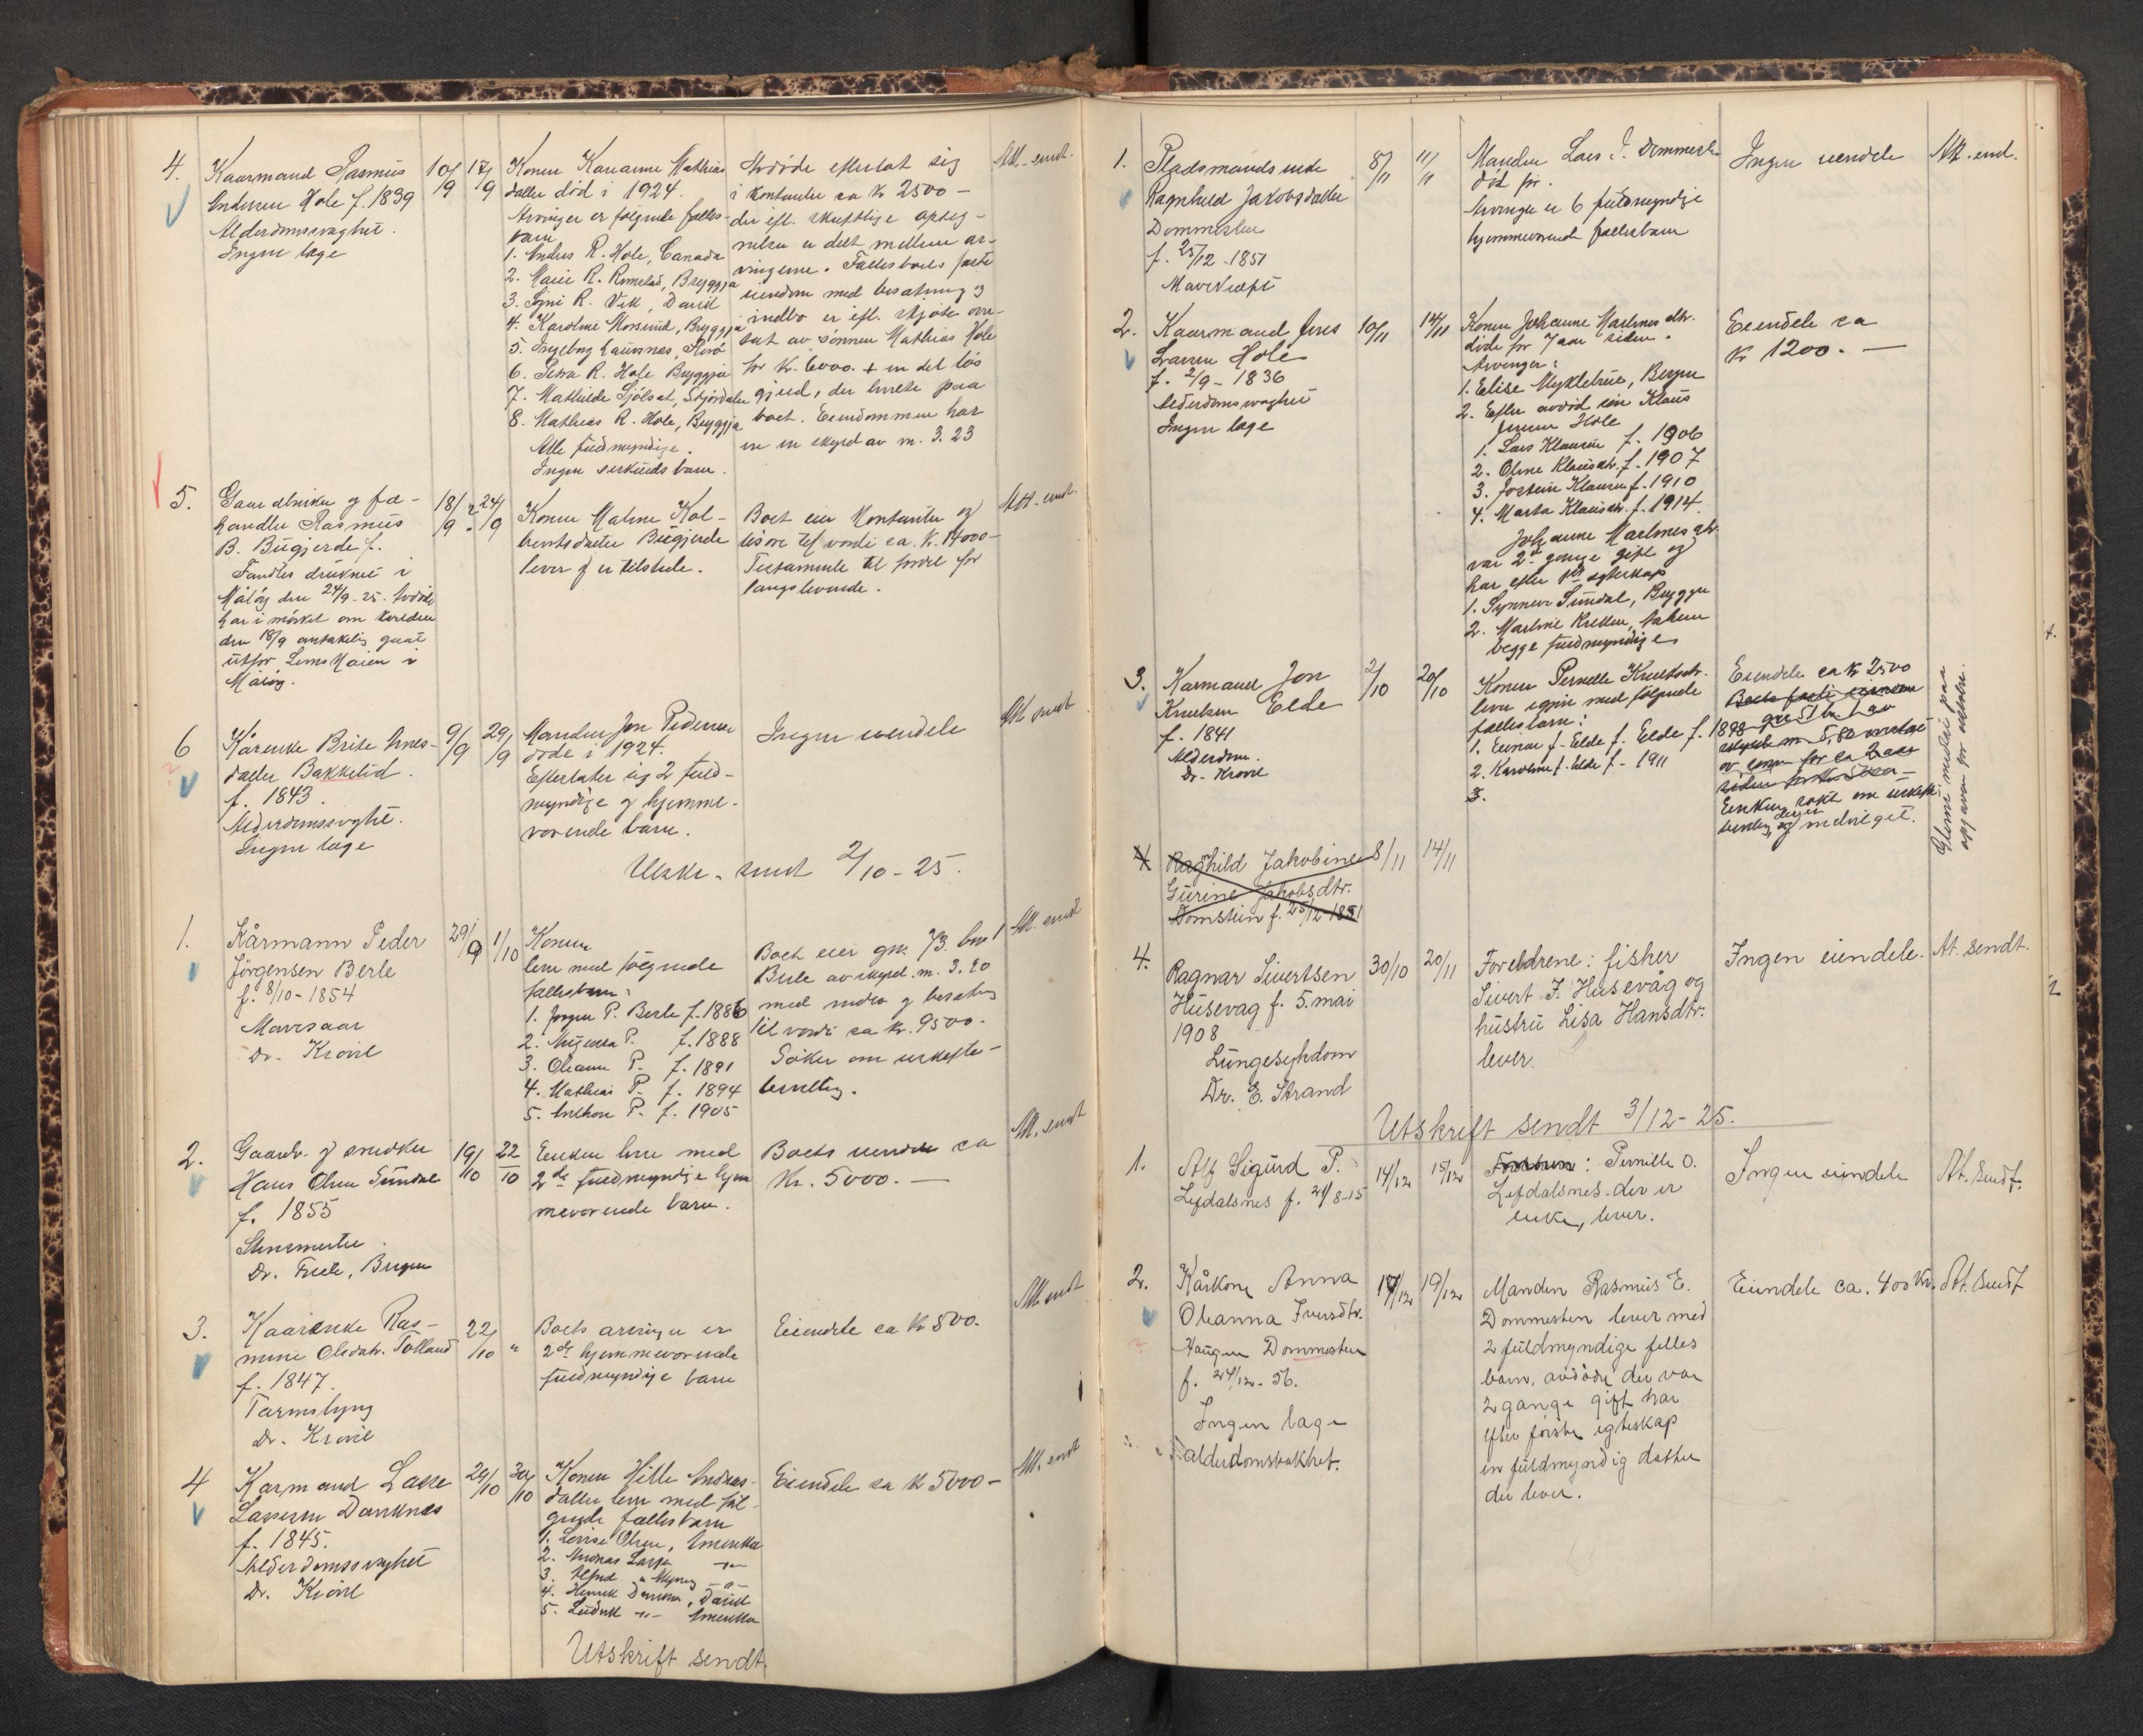 4.
Kaarmand Rasmus
Andersen Hole f. 1839
Alderdomssvaghet.
Ingen læge
10/9
17/9
Konen Karianne Mathias
datter död i 1924.
Arvinger er følgende fælles-
barn
1. Anders R. Hole, Canada
2. Marie R. Rimstad, Bryggja
3. R. Vik, Davik
4. Karoline Morsund, Bryggja
5. Ingeborg
6. Petra R. Hole Bryggja
7. Mathilde
8. Mathias R. Hole, Bryggja
Alle fuldmyndige.
Ingen særkuldsbarn.
Avdöde efterlot sig
i kontanter ca kr 2500 -
der efl. skriftlige opteg-
nelse er delt mellem ar-
vingerne. Fællesboets faste
eiendom med besætning og
indbo er efl. skjöte over-
tat av sönnen Mathias Hole
for kr. 6000. + en del lös
gjeld, der hvilte paa
boet. Eiendommen har
en skyld av m. 3.23
Att. sendt.
5.
Gaardbruker og fæ-
handler Rasmus
B. Bugjerde f.
Fandtes druknet i
Måløy den 24/9-25. Avdöde
har i mörket om kvelden
den 18/9 antakelig gaat
utfor kaien i
Måløy.
18/9
24/9
Konen Maline Kol-
bentsdatter Bugjerde
lever og er tilstede.
Boet eier kontanter og
lösöre til værdi ca. kr. 14000-
Testamente til fordel for
længstlevende.
Att. sendt.
6
Kårenke Brite Anes-
datter Bakkelid.
f. 1843.
Alderdomssvaghet.
Ingen læge
9/9
29/9
Manden Jon Pedersen
döde i 1924.
Efterlater sig 2 fuld-
myndige og hjemme-
værende barn.
Ingen eiendele
Att sendt
Utskr. sendt 2/10-25.
1.
Kårmann Peder
Jörgensen Berle
f. 8/10-1854
Mavesaar
Dr. Krövel
29/9
1/10
Konen
lever med fölgende
fællesbarn:
1. Jörgen P. Berle f. 1886
2. P. f. 1888
3. P. f. 1891
4. Mathias P. f. 1894
5. Anthon P. f. 1905
Boet eier gnr. 73. bnr 1
Berle av skyld m. 3.90
med indbo og besætning
til værdi ca kr. 9500.
Söker om uskifte-
bevilling.
Att sendt
2.
Gaardbr. og snedker
Hans Olsen Sundal
f. 1855
Dr. Bergen
19/10
22/10
Enken lever med
2de fuldmyndige hjem
meværende barn.
Boets eiendele ca
Kr. 5000. —
Att. sendt
3.
Kaarenke Ras-
mine Olsdatr. Totland
f. 1847.
Tarmslyng
Dr. Krövel
22/10
"
Boets arvinger er
2de hjemmeværende
fuldmyndige barn
Eiendele ca kr 500.
Att sendt
4
Karmand Lasse
Lassesen
f. 1845.
Alderdomssvaghet
Dr. Krövel
24/10
30/10
Konen Andreas-
datter lever med föl-
gende fællesbarn
1. Lovise Olsen, Amerika
2. Andreas Lassen -"-
3. Alfred -"-
4. Henrik, Davik
5. Ludvik -"- Amerika
Eiendele ca kr 5000-
Att. sendt
Utskrift sendt.
1.
Pladsmands enke
Ragnhild Jakobsdatter
Dommesten
f. 25/12-1851
Mavekræft
8/11
11/11
Manden Lars J. Dommesten
död för.
Arvinger er 6 fuldmyndige
hjemmeværende fællesbarn
Ingen eiendele
Att. send.
2.
Kaarmand Jens
Larsen Hole
f. 2/9-1836
Alderdomssvaghet
Ingen læge
10/11
12/11
Konen Johanne Martines dtr.
döde for 7 aar siden.
Arvinger:
1. Elise Myklebust, Bergen
2. Efter avdöd sön Klaus
Jensen Hole
1. Lars Klausen f. 1906
2. Oline Klausdtr. f. 1907
3. Jostein Klausen f. 1910
4. Marta Klausdtr. f. 1914.
Johanne Martinesdtr.
var 2de gange gift og
har efter 1ste egteskap
1. Synneve Sundal, Bryggja
2. Martine
begge fuldmyndige
Eiendele ca
kr 1200. —
3.
Karmand Jon
Knutsen Elde
f. 1841
Alderdom.
Dr. Krövel
2/10
20/10
Konen Pernille Knutsdtr.
lever igjen med fölgende
fællesbarn:
1. Einar J. Elde f. Elde f. 1898
2. Karoline J. Elde f. 1911
3.
Eiendele ca kr 2500
Boets faste eiendom
gnr 51 bnr 1 av
skyld m. 5,80 overtat
av sönnen for ca 2 aar
siden
Enken sökt om uskifte
bevilling og indvilget.
Glemt medtat paa
opgaven for oktober.
4
Ragnhild Jakobine
Gurine Jakobsdtr.
Domstein f. 25/12-1851
8/11
14/11
4.
Ragnar Sivertsen
Husevag f. 5. mai
1908
Lungesykdom
Dr. E. Strand
30/10
20/11
Foreldrene: fisker
Sivert J. Husevåg og
hustru Lisa Hansdtr.
lever.
Ingen eiendele.
At. sendt.
Utskrift sendt 3/12-25.
1.
Alf Sigurd P.
Lefdalsnes f. 21/8-15
14/12
15/12
: Pernille O.
Lefdalsnes der er
enke, lever.
Ingen eiendele
At. sendt.
2.
Kårkone Anna
Oleanna Iversdtr.
Haugen Dommesten
f. 24/12-56.
Ingen læge
alderdomsvakhet.
17/12
19/12
Manden Rasmus E.
Dommesten lever med
2 fuldmyndige felles
barn, avdöde der var
2 gange gift har
efter förste egteskap
en fuldmyndig datter
der lever.
Eiendele ca. 400 Kr.
At. sendt